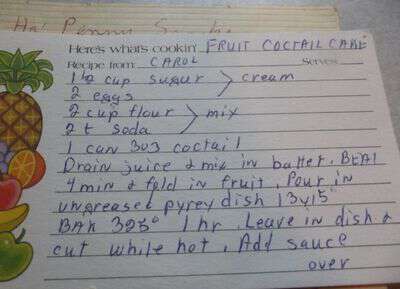 Here's what's cookin' FRUIT COCTAIL CAKE
Recipe from CAROL Serves
1 1/2 cup sugur > cream
2 eggs
2 cup flour > mix
2 t soda
1 can 303 coctail
Drain juice & mix in batter. BEAT
4 min & fold in fruit. Pour in
ungreased pyrey dish 13x15
BAK 325° 1 hr. Leave in dish &
cut while hot. Add sauce
over